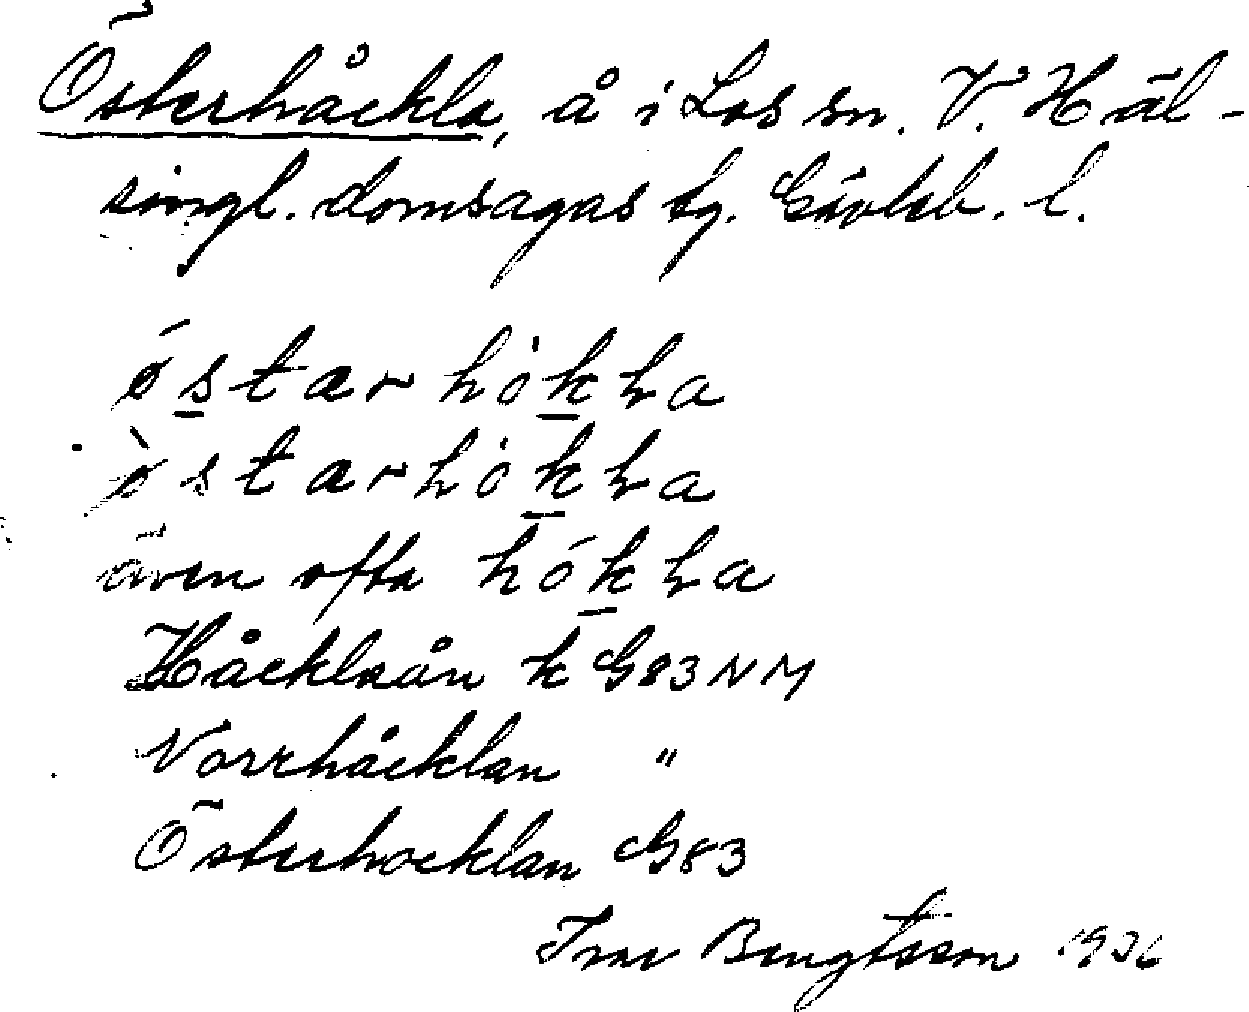 Österhåckla, å i Los sn. V. Häl-
singl. domsagas tg. Gävleb. l.
ǿstarhȯkła
østarhȯkła
även ofta hókła
Håcklaån k G83NM
Norrhåcklan "
Österhocklan G83
Ivar Bengtsson 1936